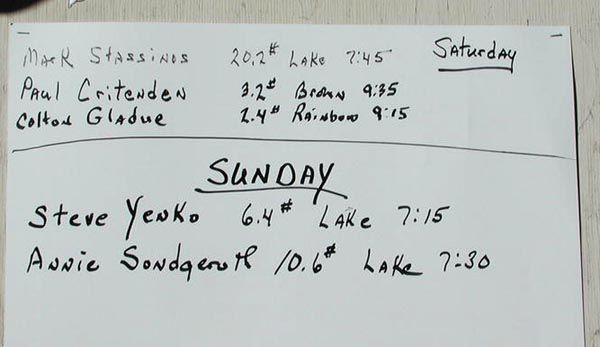 Mark Stassinos 20.2# Lake 7:45 Saturday
Paul Critenden 3.2# Brown 9:35
Colton Gladue 2.4# Rainbow 9:15
SUNDAY
Steve Yenko 6.4# Lake 7:15
Annie Sondgeroth 10.6# Lake 7:30